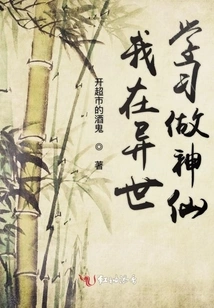 我在异世
学习做神仙
开超市的酒鬼 ◎ 著